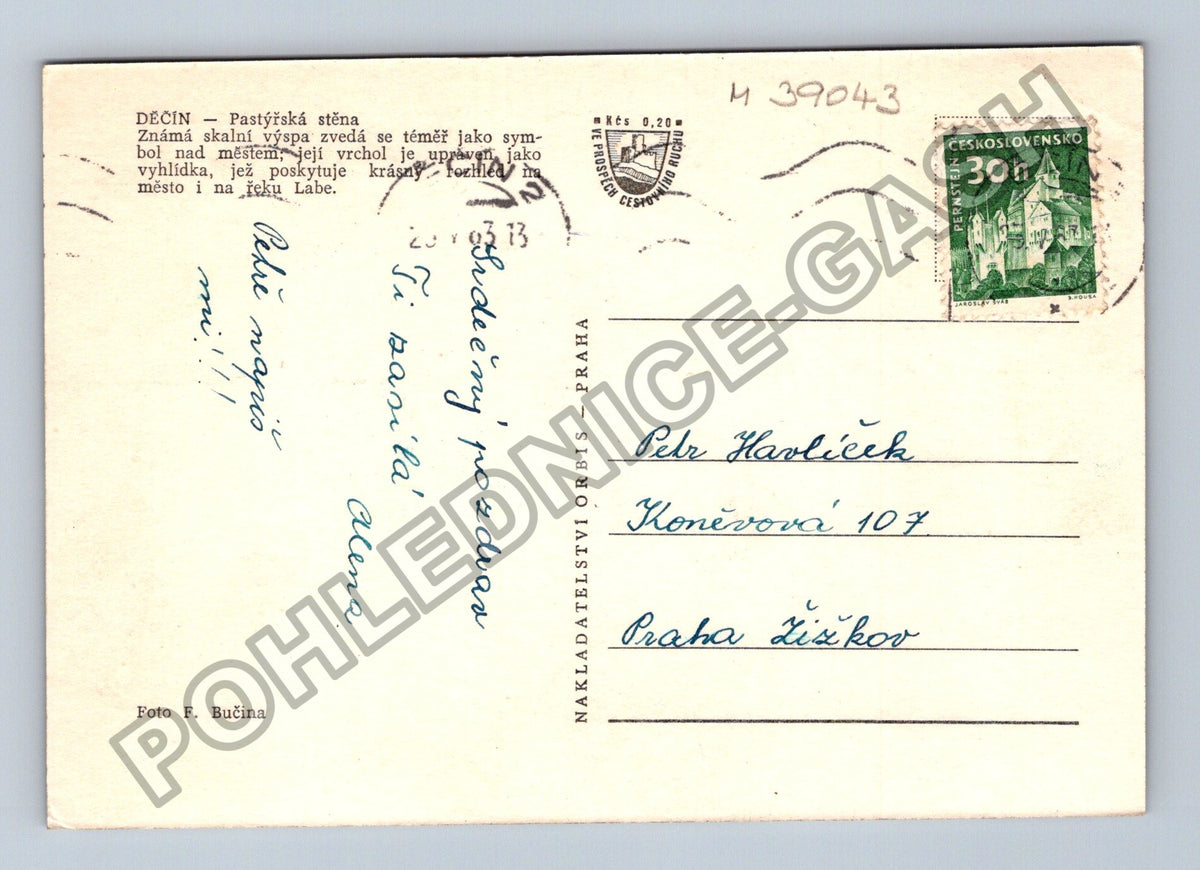 M 39043
DĚČÍN — Pastýřská stěna
Známá skalní výspa zvedá se téměř jako sym-
bol nad městem, její vrchol je upraven jako
vyhlídka, jež poskytuje krásný rozhled na
město i na řeku Labe.
Kčs 0,20
VE PROSPĚCH CESTOVNÍHO RUCHU
ČESKOSLOVENSKO
30h
PERNŠTEJN
JAROSLAV ŠVÁB
B. HOUSA
63 13
Srdečný pozdrav
Ti zasílá
Alena
Petře napiš
mi!!!
NAKLADATELSTVÍ ORBIS — PRAHA
Petr Havlíček
Koněvová 107
Praha Žižkov
Foto F. Bučina
POHLEDNICE-GASH